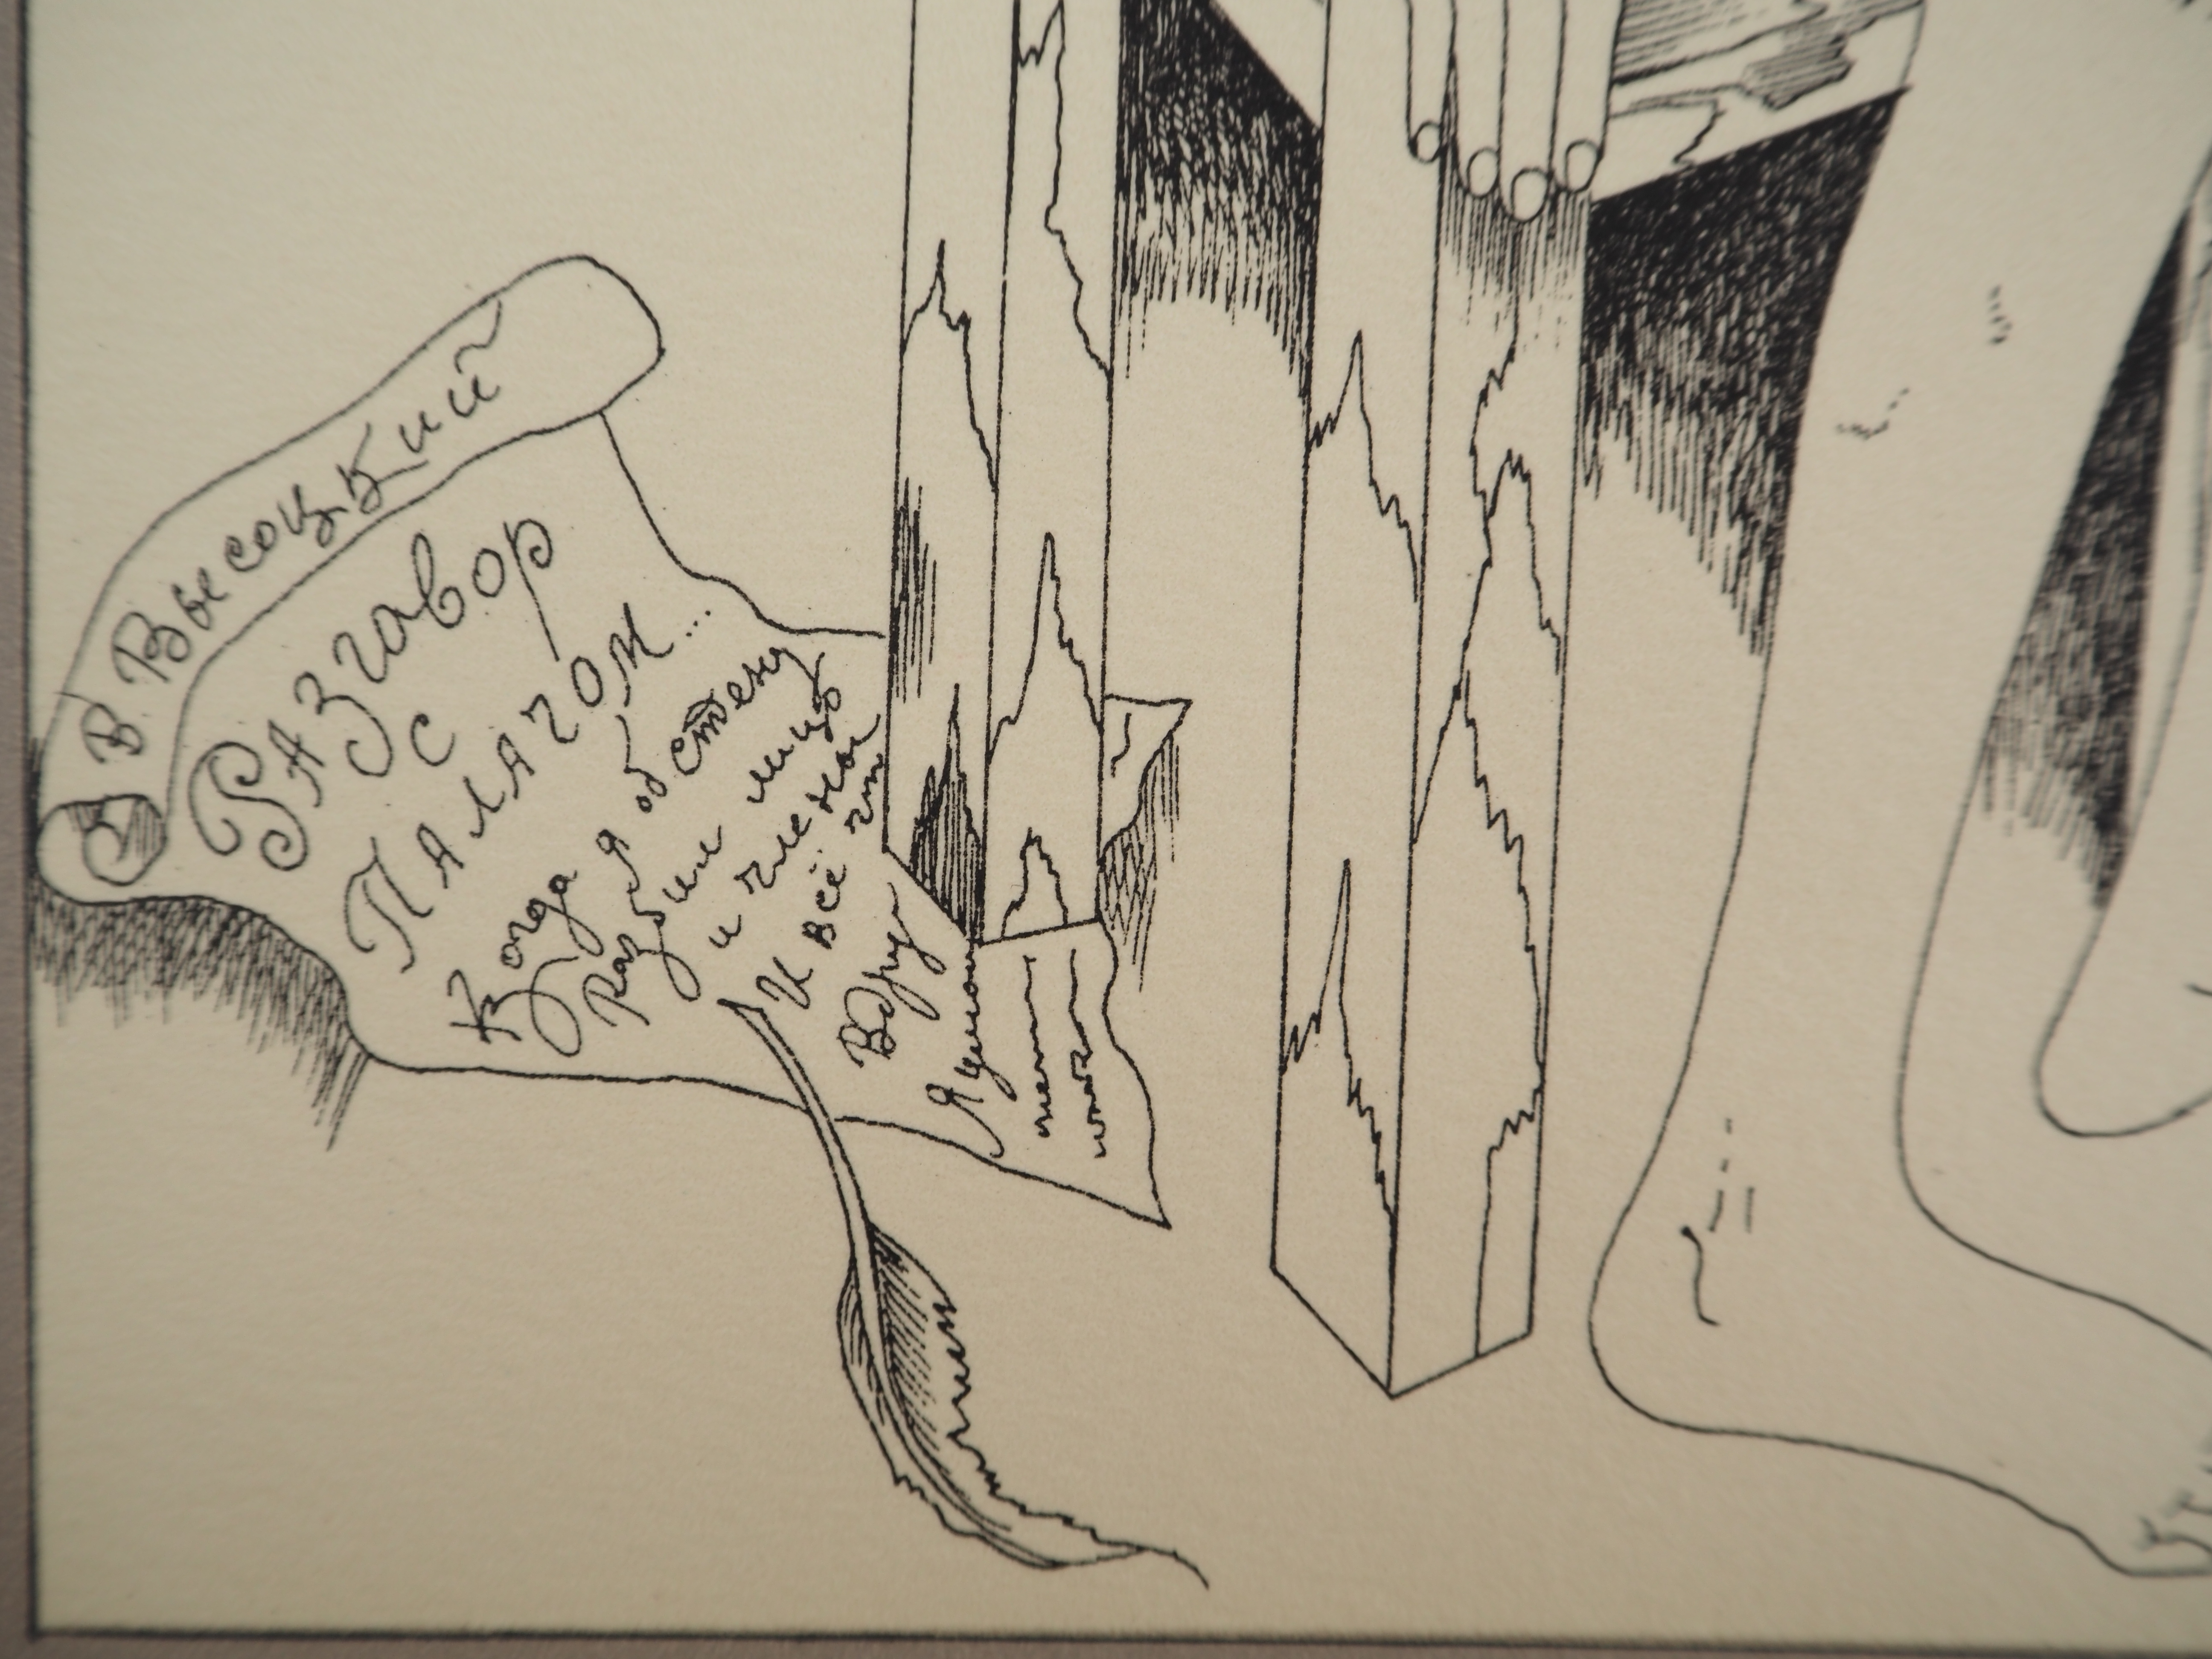 В Высоцкий
РАЗговор
с
ПАЛАЧОМ...
Когда я об стену
разбил лицо
и члены
И всё чт
Вдруг
Я услы